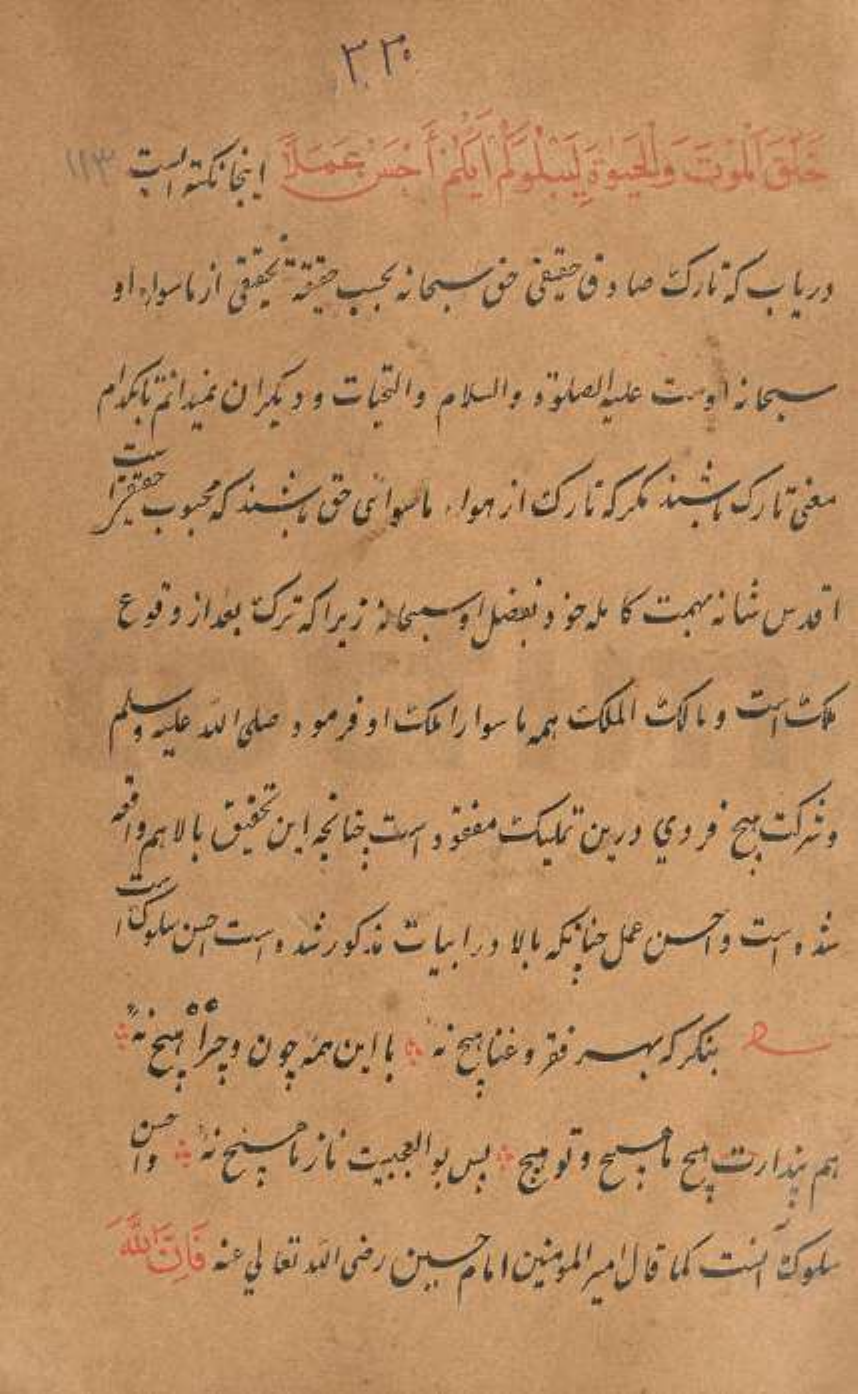 ۳۳۰
خَلَقَ الْمَوْتَ وَالْحَيٰوةَ لِيَبْلُوَكُمْ أَيُّكُمْ أَحْسَنُ عَمَلًا اینجا نکته است ۱۱۳
دریاب که تارک صادق حقیقی حق سبحانه بحسب حقیقة تحقیقی از ماسواء او
سبحانه اوست علیه الصلوة والسلام والتحیات و دیگران نمیدانم تا بکدام
معنی تارک باشند مگر که تارک از هواء ماسوای حق باشند که محبوب حقیقی است
اقدس شانه بهمت کامله خود بفضل او سبحانه زیرا که ترک بعد از وقوع
ملک است و مالک الملک همه ماسوا را ملک او فرمود صلی الله علیه وسلم
و شرکت هیچ فردی درین تملیک مفقود است چنانچه این تحقیق بالا هم واقعه
شده است و احسن عمل چنانکه بالا در ابیات مذکور شده است حسن سلوک است
بنگر که بهر فقر و غنا هیچ نه با این همه چون و چرا هیچ نه
هم پندارت هیچ ما هیچ و تو هیچ پس بوالعجبیت ناز ما هیچ نه و احسن
سلوک آنست کما قال امیر المومنین امام حسین رضی الله تعالی عنه فَاِنَّ اللّٰهَ